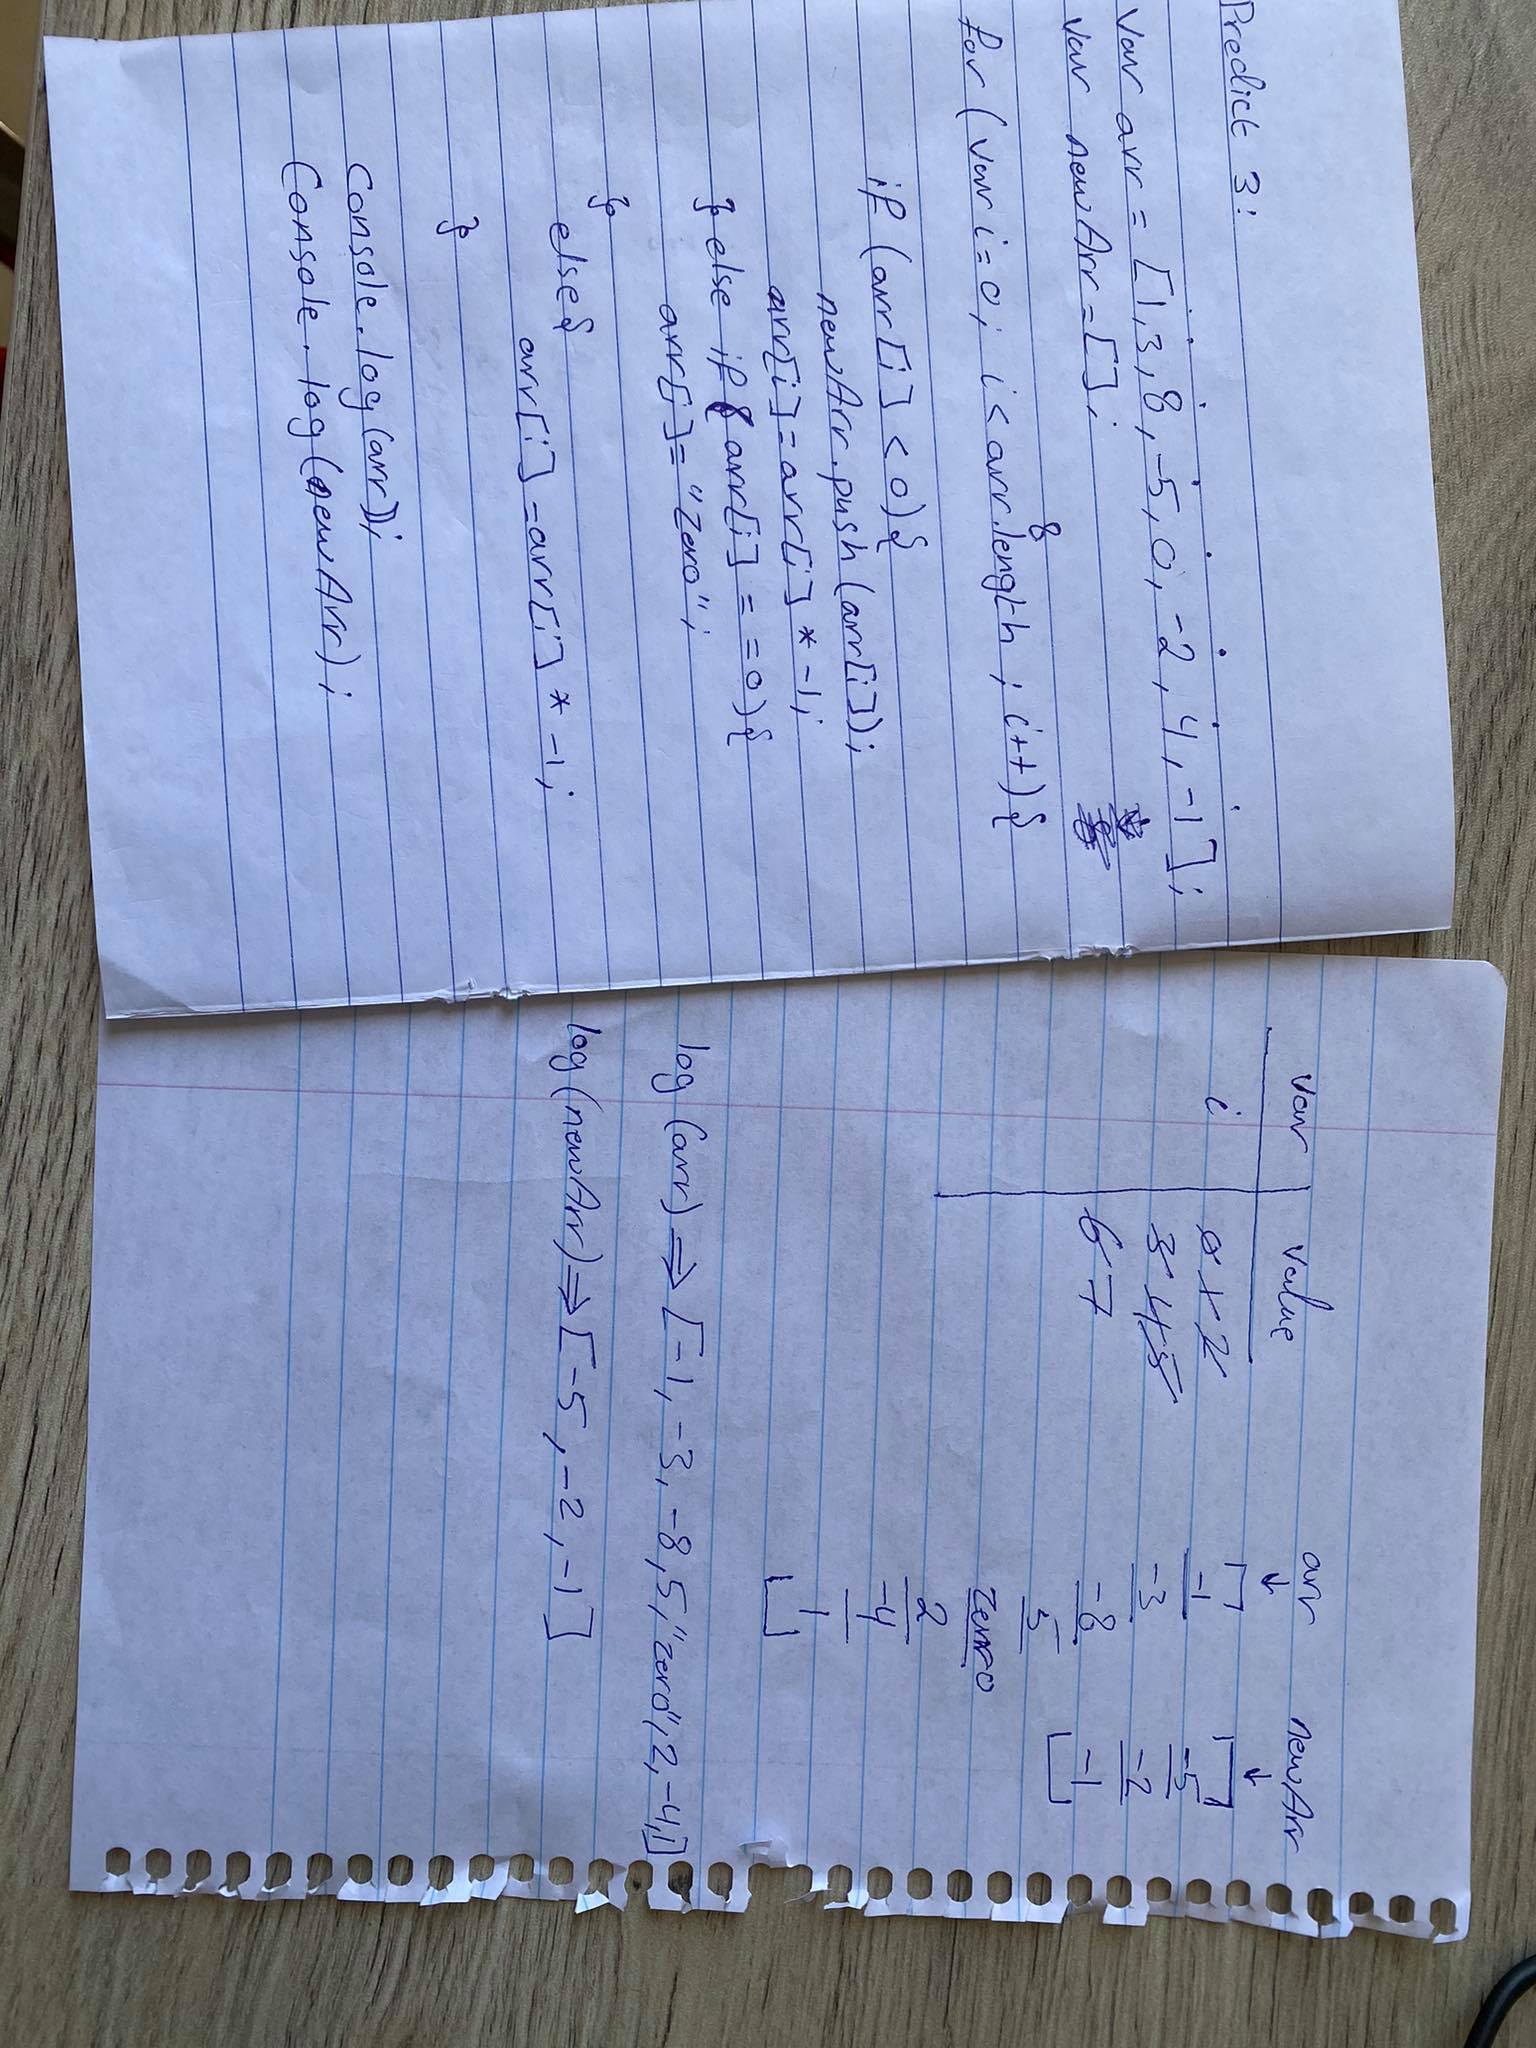 Predict 3:
var arr = [1,3,8,-5,0,-2,4,-1];
var newArr = [];
8
for (var i=0; i<arr.length; i++){
if (arr[i] <0){
newArr.push(arr[i]);
arr[i]=arr[i]*-1;
} else if (arr[i]==0){
arr[i]="Zero";
}
else{
arr[i]=arr[i]*-1;
}
Console.log(arr);
Console.log(newArr);
var value arr newArr
i 0 1 2
3 4 5
6 7
[
-1
-3
-8
5
Zero
2
-4
1
]
[
-5
-2
-1
]
log (arr) ⇒ [-1,-3,-8,5,"zero",2,-4,1]
log (newArr) ⇒ [-5,-2,-1]